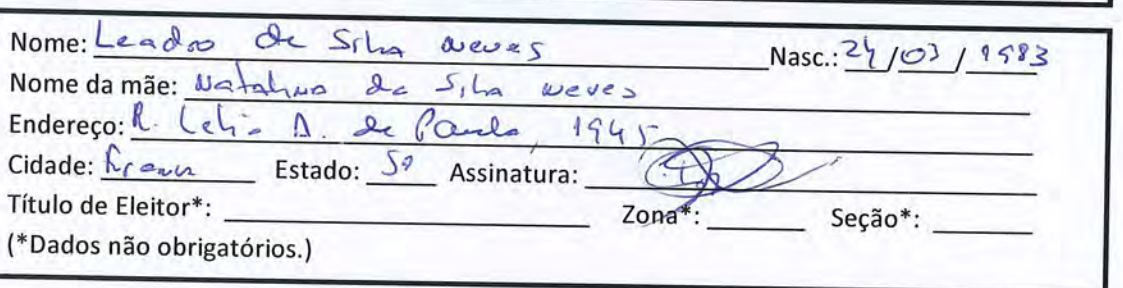 Nome: Leadro de Silva Neves Nasc.: 24/03/1983
Nome da mãe: Natalina da Silva Neves
Endereço: R. A. de Paula, 1945
Cidade: Franca Estado: SP Assinatura:
Título de Eleitor*: Zona*: Seção*:
(*Dados não obrigatórios.)